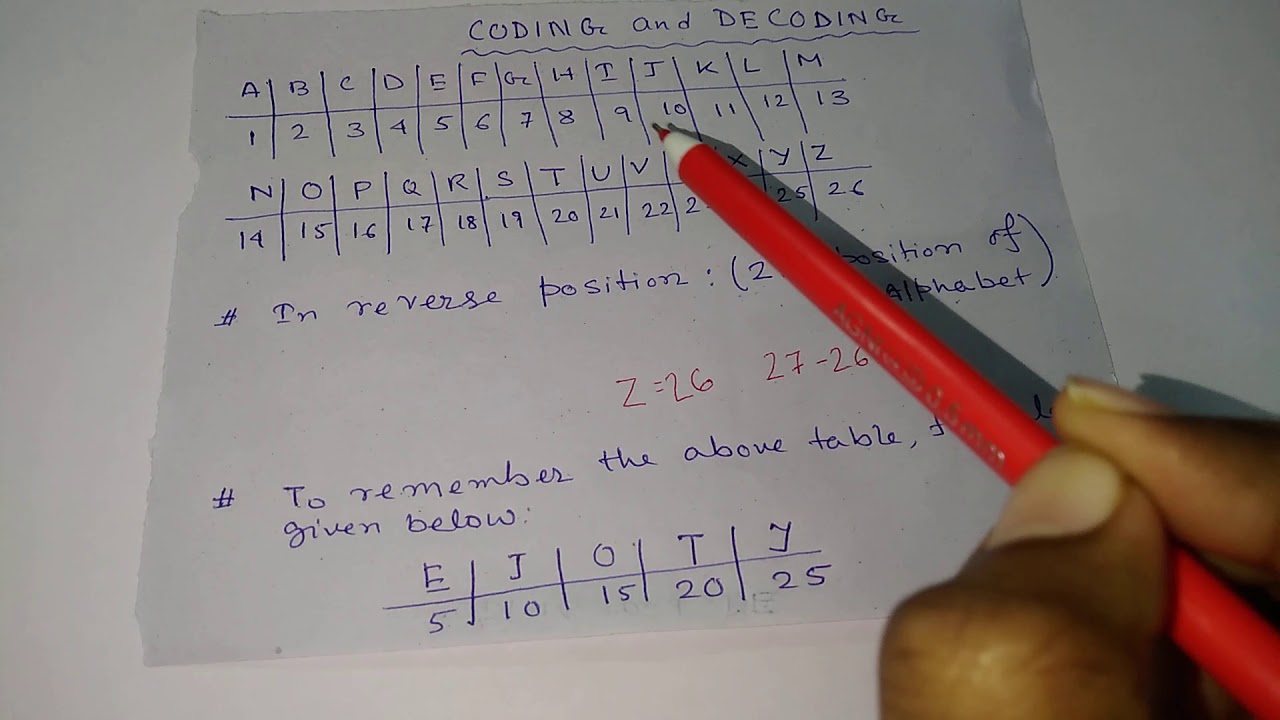 CODING and DECODING
A B C D E F G H I J K L M
1 2 3 4 5 6 7 8 9 10 11 12 13
N O P Q R S T U V X Y Z
14 15 16 17 18 19 20 21 22 2 25 26
# In reverse position: (2 position of
Alphabet)
Z=26 27-26
# To remember the above table,
given below:
E J O T Y
5 10 15 20 25